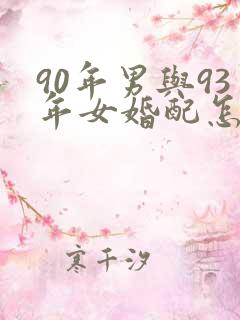 90年男與93
年女婚配怎
寒千汐